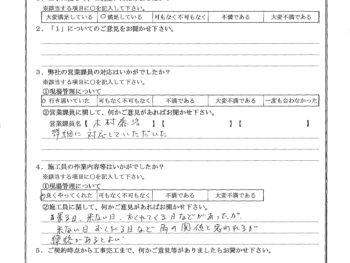 ※該当する項目に○を記入して下さい。
大変満足している ○満足している 可もなく不可もなく 不満である 大変不満である
2．「1」についてのご意見をお聞かせ下さい。
3．弊社の営業課員の対応はいかがでしたか？
※該当する項目に○を記入して下さい。
①現場管理について
○行き届いていた 可もなく不可もなく 不満である 大変不満である 一度も会わなかった
②営業課員に関して、何かご意見があればお聞かせ下さい。
営業課員名【 木村 】【 】【 】
詳細に対応していただいた
4．施工員の作業内容等はいかがでしたか？
※該当する項目に○を記入して下さい。
①現場管理について
良くやってくれた 可もなく不可もなく 不満である 大変不満である
②施工員に関して、何かご意見があればお聞かせ下さい。
来る日、来ない日、おくれてくる日などがあったが、
来ない日おくれる日など雨の関係と思われるが
連絡があるとよい
5．ご契約時点から工事完工まで、何かご意見等がありましたらお聞かせ下さい。